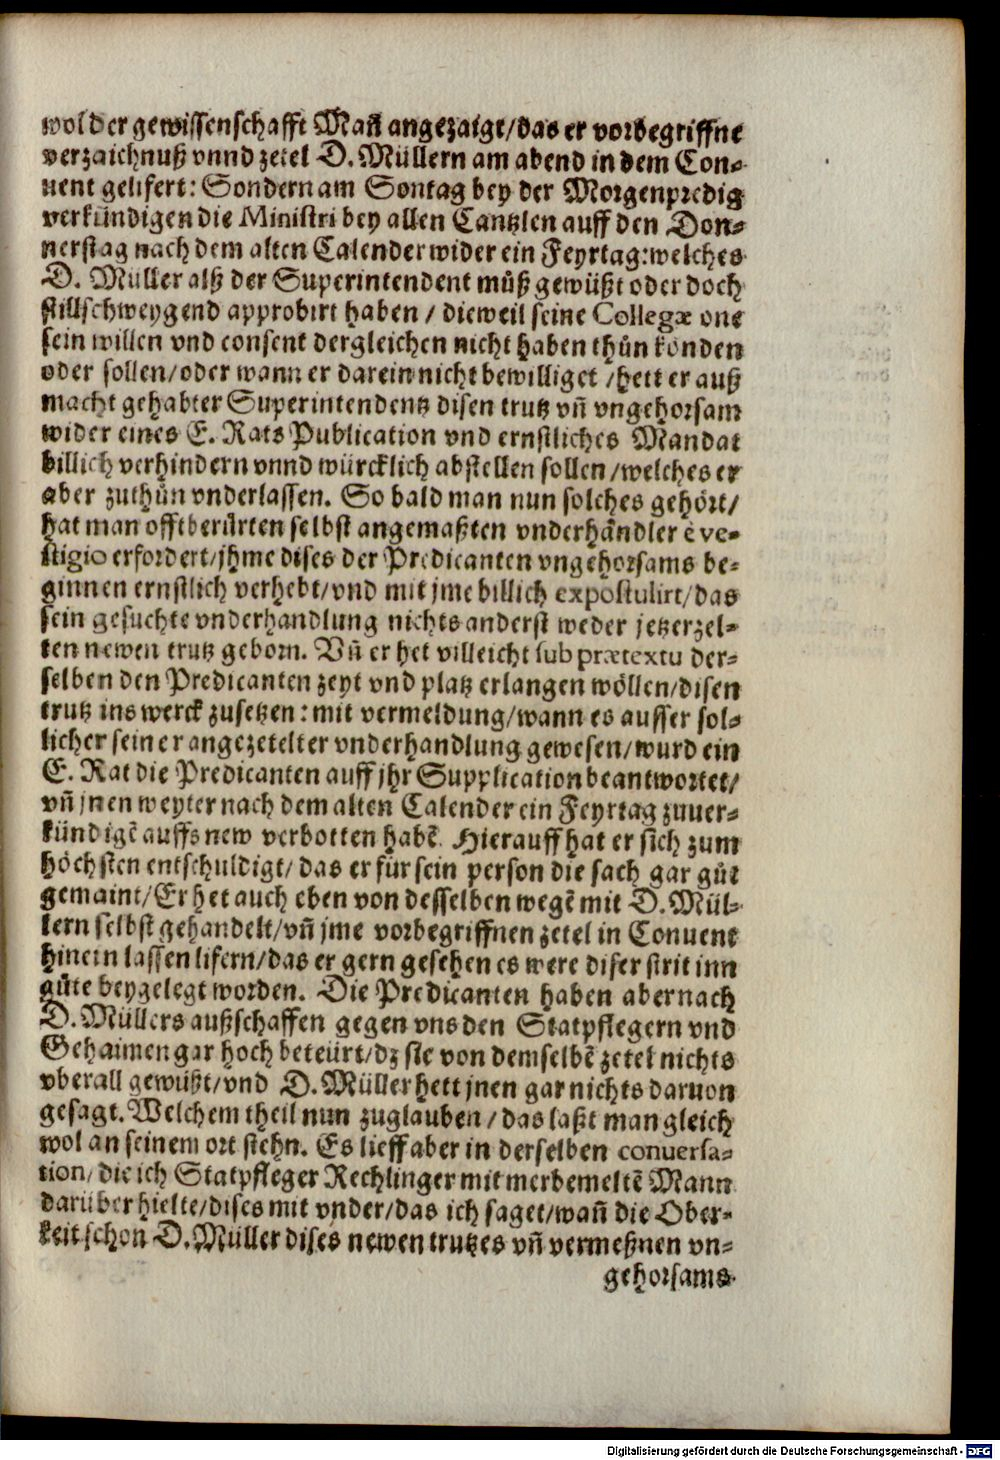 wol der gewissenschafft Mañ angezaigt/das er vorbegriffne
verzaichnuß vnnd zetel D. Müllern am abend in dem Con-
uent gelifert: Sondern am Sontag bey der Morgenpredig
verkündigen die Ministri bey allen Cantzlen auff den Don-
nerstag nach dem alten Calender wider ein Feyrtag: welches
D. Müller alß der Superintendent můß gewüßt oder doch
stillschweygend approbirt haben / dieweil seine Collegæ one
sein willen vnd consent dergleichen nicht haben thůn konden
oder sollen/oder wann er darein nicht bewilliget /hett er auß
macht gehabter Superintendentz disen trutz vñ vngehorsam
wider eines E. Rats Publication vnd ernstliches Mandat
billich verhindern vnnd würcklich abstellen sollen/welches er
aber zuthůn vnderlassen. So bald man nun solches gehört/
hat man offtberürten selbst angemaßten vnderhändler è ve-
stigio erfordert/jhme dises der Predicanten vngehorsams be-
ginnen ernstlich verhebt/vnd mit jme billich expostulirt/das
sein gesuchte vnderhandlung nichts anderst weder jetzerzel-
ten newen trutz geborn. Vñ er het villeicht sub prætextu der-
selben den Predicanten zeyt vnd platz erlangen wöllen/disen
trutz ins werck zusetzen: mit vermeldung/wann es ausser sol-
licher seiner angezetelter vnderhandlung gewesen/wurd ein
E. Rat die Predicanten auff jhr Supplication beantwortet/
vñ jnen weyter nach dem alten Calender ein Feyrtag zuuer-
kündigē auffs new verbotten habē. Hierauff hat er sich zum
höchsten entschuldigt/das er für sein person die sach gar gůt
gemaint/Er het auch eben von desselben wegē mit D. Mül-
lern selbst gehandelt/vñ jme vorbegriffnen zetel in Conuent
hinein lassen lifern/das er gern gesehen es were diser strit inn
gůte beygelegt worden. Die Predicanten haben aber nach
D. Müllers außschaffen gegen vns den Statpflegern vnd
Gehaimen gar hoch beteürt/dz sie von demselbē zetel nichts
vberall gewüßt/vnd D. Müller hett jnen gar nichts daruon
gesagt. Welchem theil nun zuglauben / das laßt man gleich
wol an seinem ort stehn. Es lieff aber in derselben conuersa-
tion/die ich Statpfleger Rechlinger mit merbemeltē Mann
darüber hielte/dises mit vnder/das ich saget/wañ die Ober-
keit schon D. Müller dises newen trutzes vñ vermeßnen vn-
gehorsams
Digitalisierung gefördert durch die Deutsche Forschungsgemeinschaft - DFG